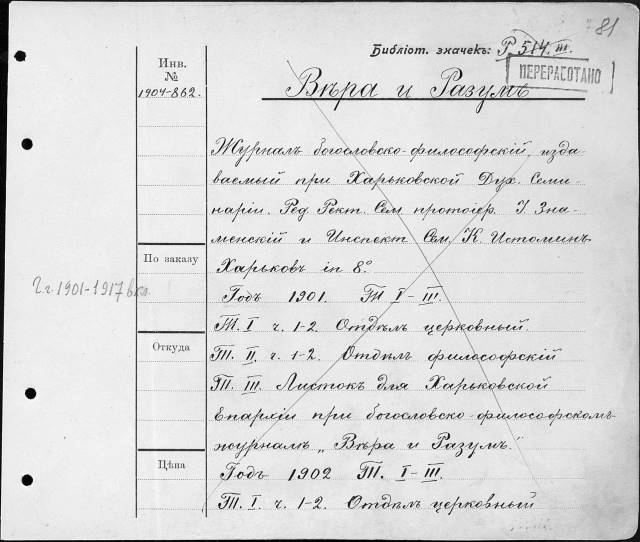 81
Библіот. значекъ: Р. 514. III.
ПЕРЕРАБОТАНО
Инв.
№
1904-862.
Вѣра и Разумъ
Журналъ богословско-философскій, изда
ваемый при Харьковской Дух. Семи
наріи. Ред. Рект. Сем. протоіер. І. Зна
менскій и Инспект. Сем. К. Истоминъ
По заказу
Харьковъ in 8º
Гг. 1901-1917 вкл.
Годъ 1901. Т. I-III.
Т. I ч. 1-2. Отдѣлъ церковный.
Откуда
Т. II. ч. 1-2. Отдѣлъ философскій
Т. III. Листокъ для Харьковской
Епархіи при богословско-философскомъ
журналѣ „Вѣра и Разумъ."
Цѣна
Годъ 1902 Т. I-III.
Т. I. ч. 1-2. Отдѣлъ церковный